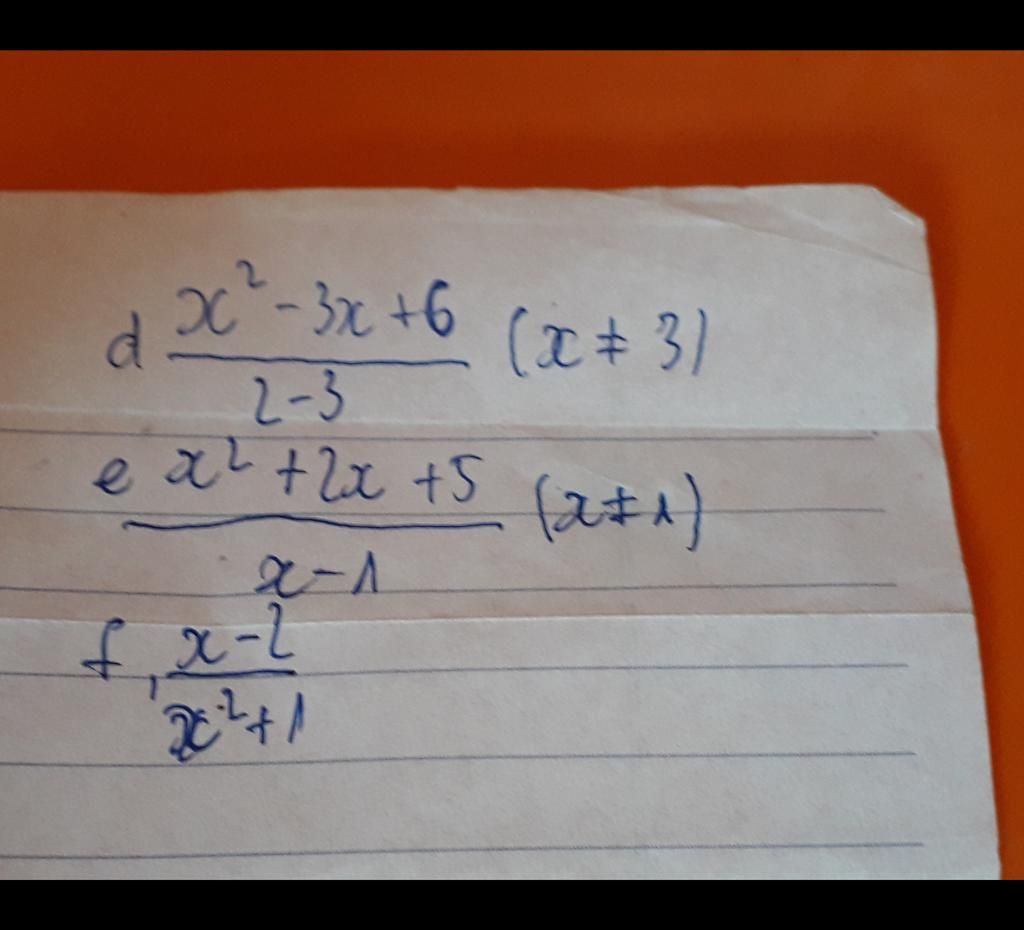 d x² - 3x + 6 / 2 - 3 (x ≠ 3)
e x² + 2x + 5 / x - 1 (x ≠ 1)
f, x - 2 / x² + 1